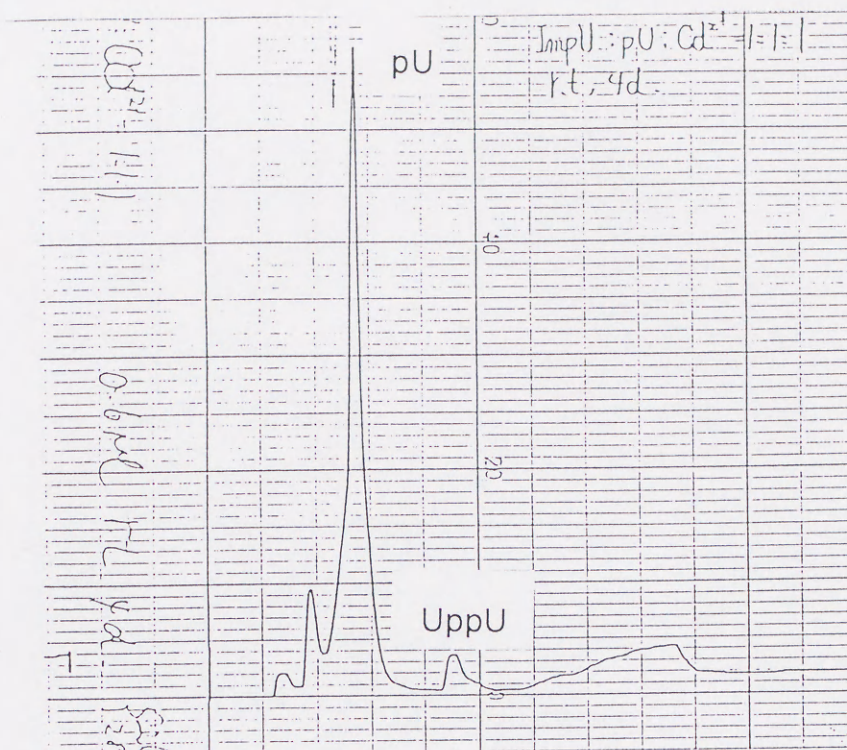 pU
ImpU : pU : Cd²⁺ = 1 = 1 = 1
r.t, 4d.
40
20
0
UppU
Cd²⁺ = 1:1:1
0.6 ml